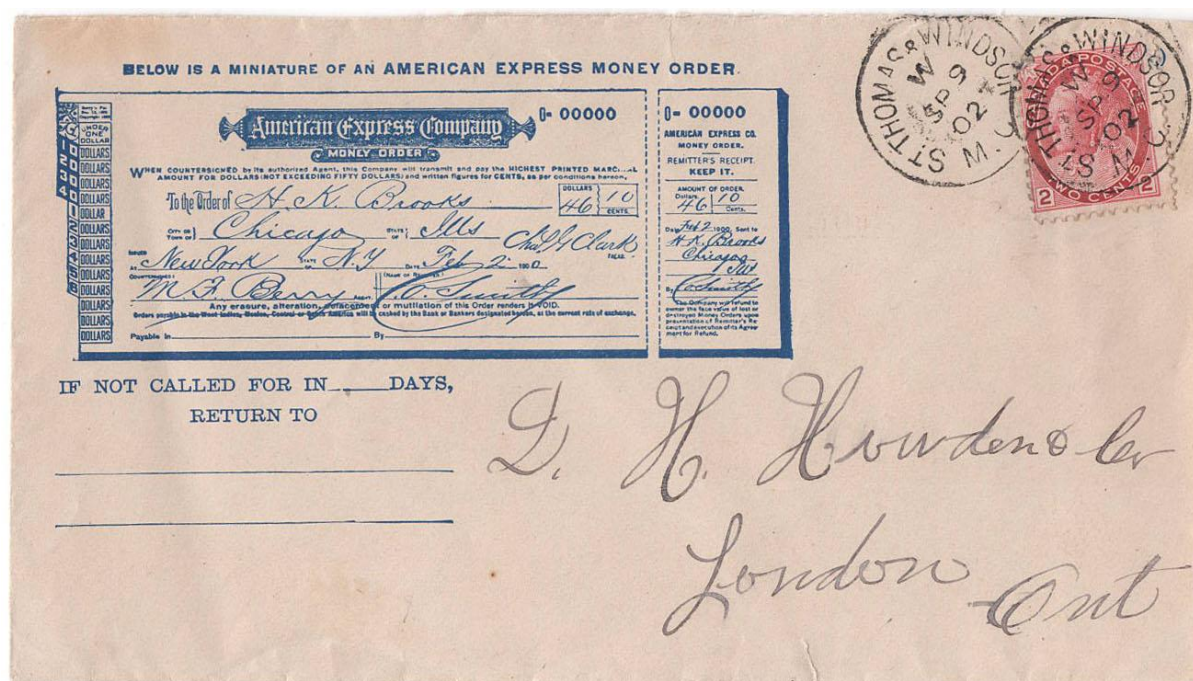 BELOW IS A MINIATURE OF AN AMERICAN EXPRESS MONEY ORDER.
American Express Company
MONEY ORDER
0- 00000
WHEN COUNTERSIGNED by its authorized Agent, this Company will transmit and pay the HIGHEST PRINTED
AMOUNT FOR DOLLARS (NOT EXCEEDING FIFTY DOLLARS) and written figures for CENTS, as per conditions hereon.
To the Order of H. K. Brooks
DOLLARS 46 10 CENTS
CITY OR TOWN OF Chicago STATE OF Ills
Chas. G. Clark
TREAS.
AT New York STATE OF N.Y. DATE Feb 2 1900
COUNTERSIGNED M F Berry AGENT C. Smith
Any erasure, alteration, defacement or mutilation of this Order renders it VOID.
Orders payable in the West Indies, Mexico, Central or South America will be cashed by the Bank or Bankers designated hereon, at the current rate of exchange.
Payable in By
UNDER ONE DOLLAR
DOLLARS
DOLLARS
DOLLARS
DOLLARS
DOLLAR
DOLLARS
DOLLARS
DOLLARS
DOLLARS
DOLLARS
DOLLARS
DOLLARS
DOLLARS
0- 00000
AMERICAN EXPRESS CO.
MONEY ORDER.
REMITTER'S RECEIPT.
KEEP IT.
AMOUNT OF ORDER.
Dollars. 46 10 Cents.
Date Feb 2 1900. Sent to
H. K. Brooks
Chicago
By C. Smith
The Company will refund to
owner the face value of lost or
destroyed Money Orders upon
presentation of Remitter's Re-
ceipt and execution of its Agree-
ment for Refund.
ST THOMAS & WINDSOR M.C.
W
SP 9
02
ST THOMAS & WINDSOR M.C.
W
SP 9
02
CANADA POSTAGE
2 TWO CENTS 2
IF NOT CALLED FOR IN DAYS,
RETURN TO
D. H. Howden & Co
London Ont